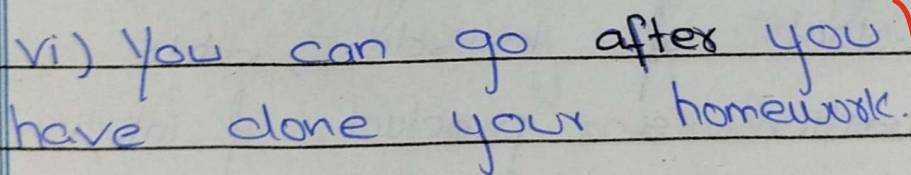 vi) You can go after you
have done your homework.